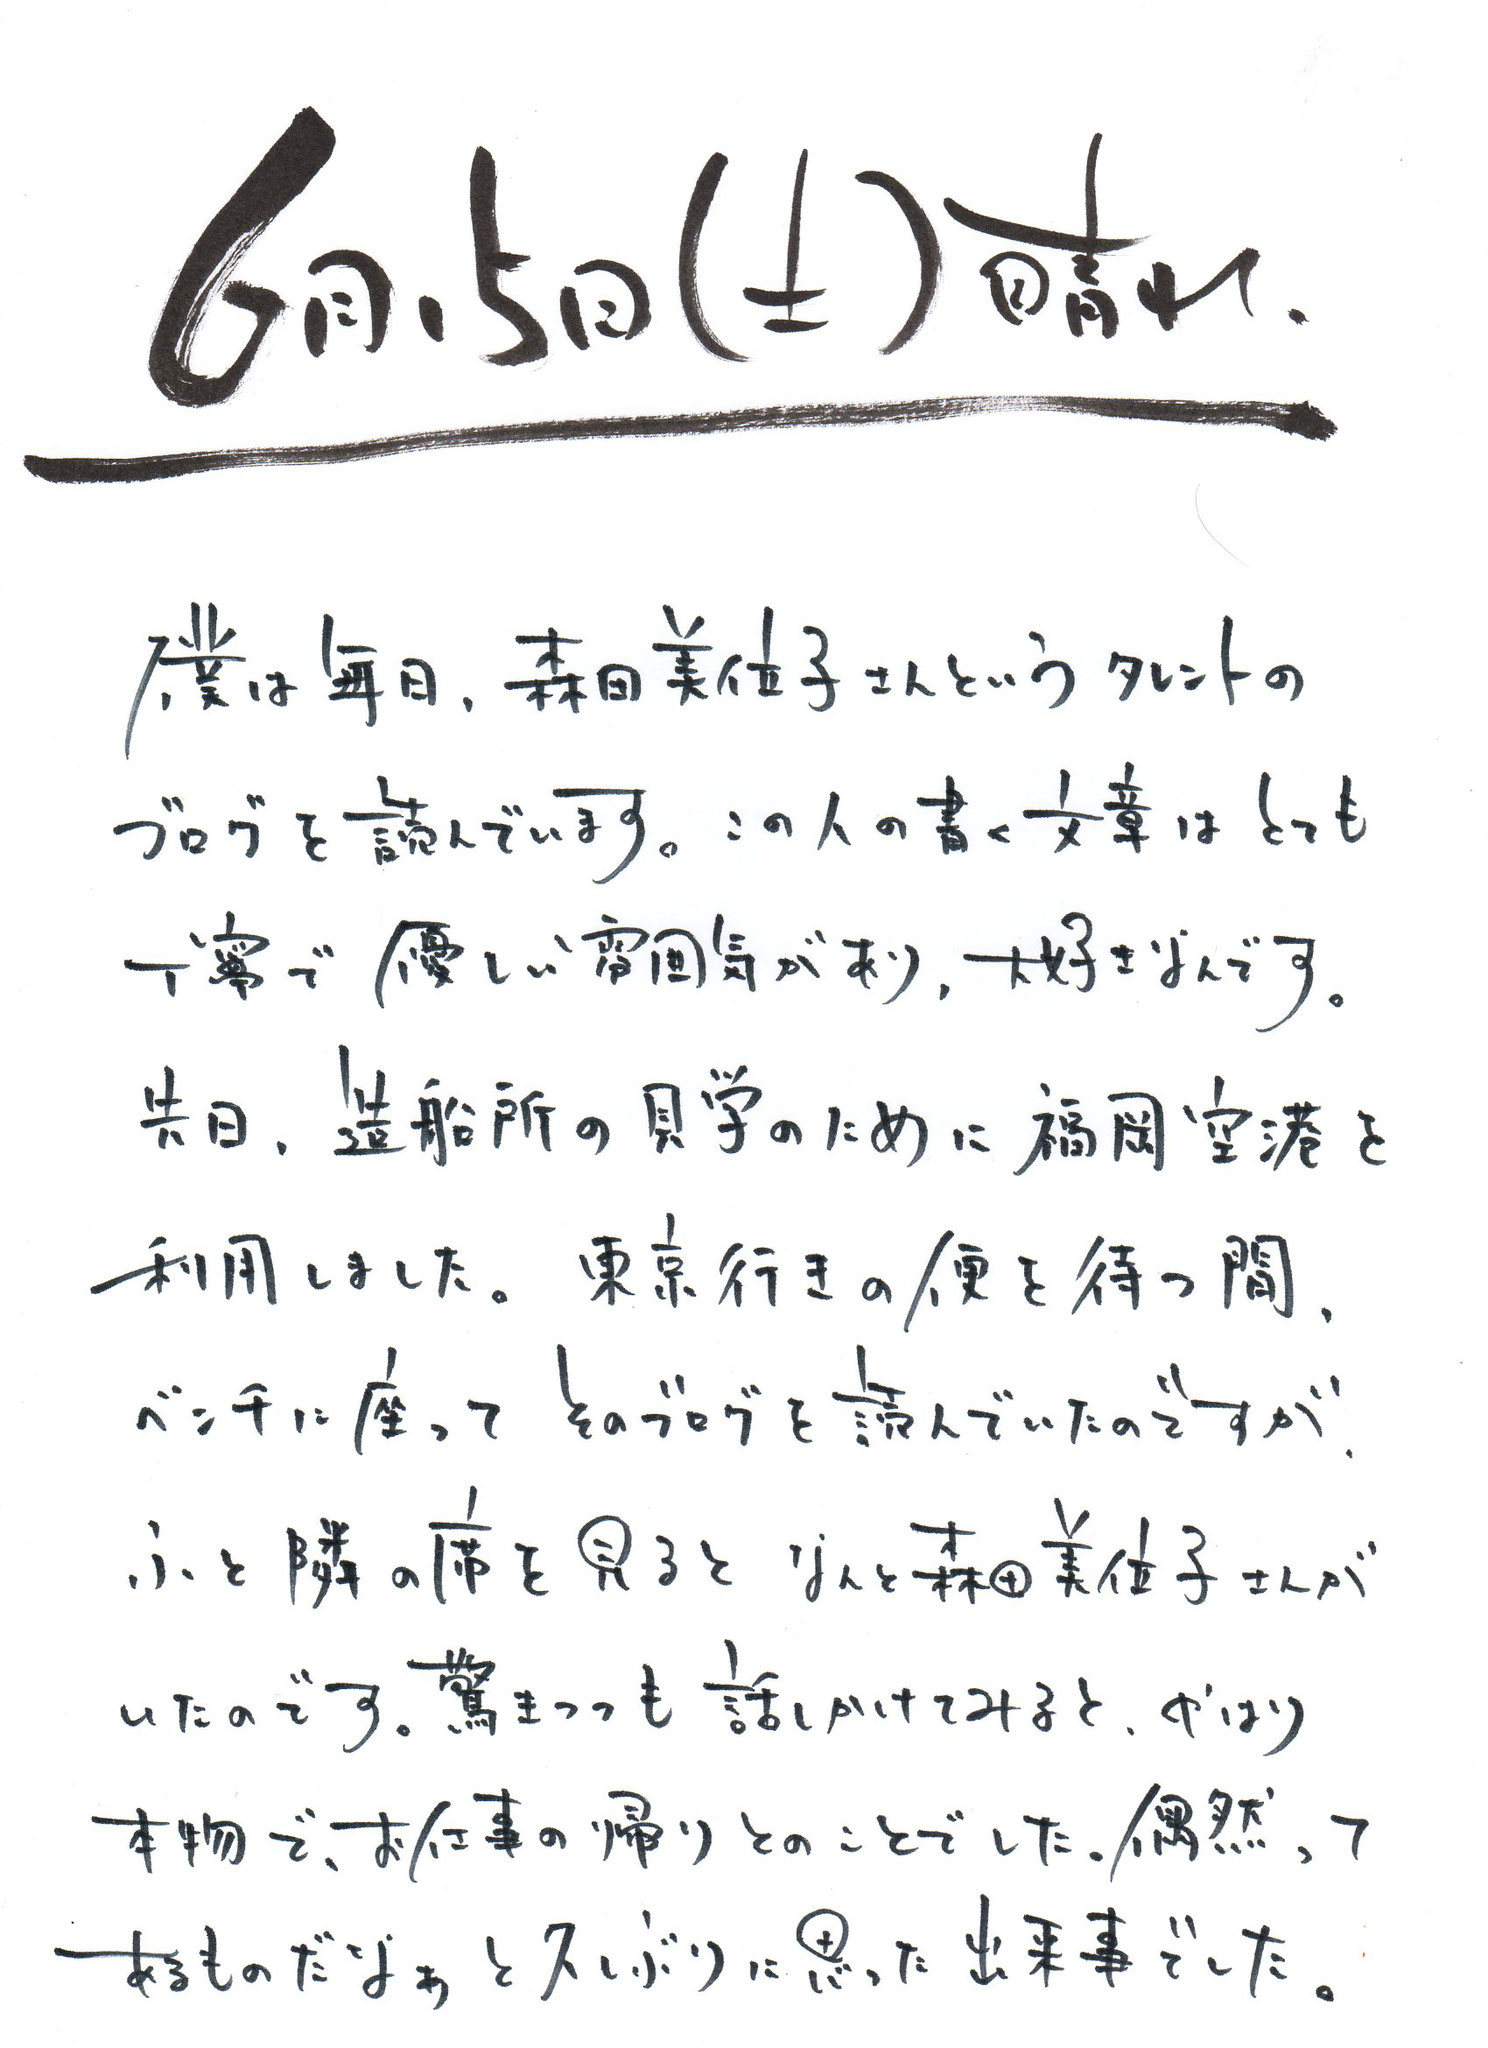 6月15日(土)晴れ.
僕は毎日、森田美位子さんというタレントの
ブログを読んでいます。この人の書く文章はとても
丁寧で優しい雰囲気があり、大好きなんです。
先日、造船所の見学のために福岡空港を
利用しました。東京行きの便を待つ間、
ベンチに座ってそのブログを読んでいたのですが、
ふと隣の席を見るとなんと森田美位子さんが
いたのです。驚きつつも話しかけてみると、やはり
本物で、お仕事の帰りとのことでした。偶然って
あるものだなぁと久しぶりに思った出来事でした。